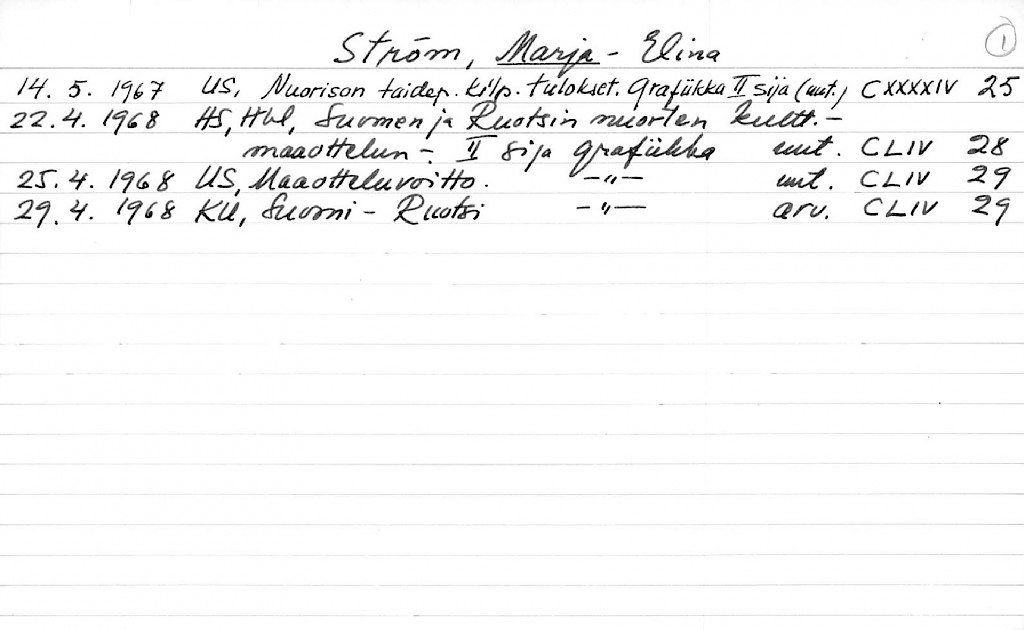 Ström, Marja-Elina 1
14. 5. 1967 US, Nuorison taidep. kilp. tulokset. Grafiikka II sija (uut.) CXXXXIV 25
22. 4. 1968 HS, Hbl, Suomen ja Ruotsin nuorten kultt.-
maaottelun - II sija grafiikka uut. CLIV 28
25. 4. 1968 US, Maaotteluvoitto. -"- uut. CLIV 29
29. 4. 1968 KU, Suomi - Ruotsi -"- arv. CLIV 29